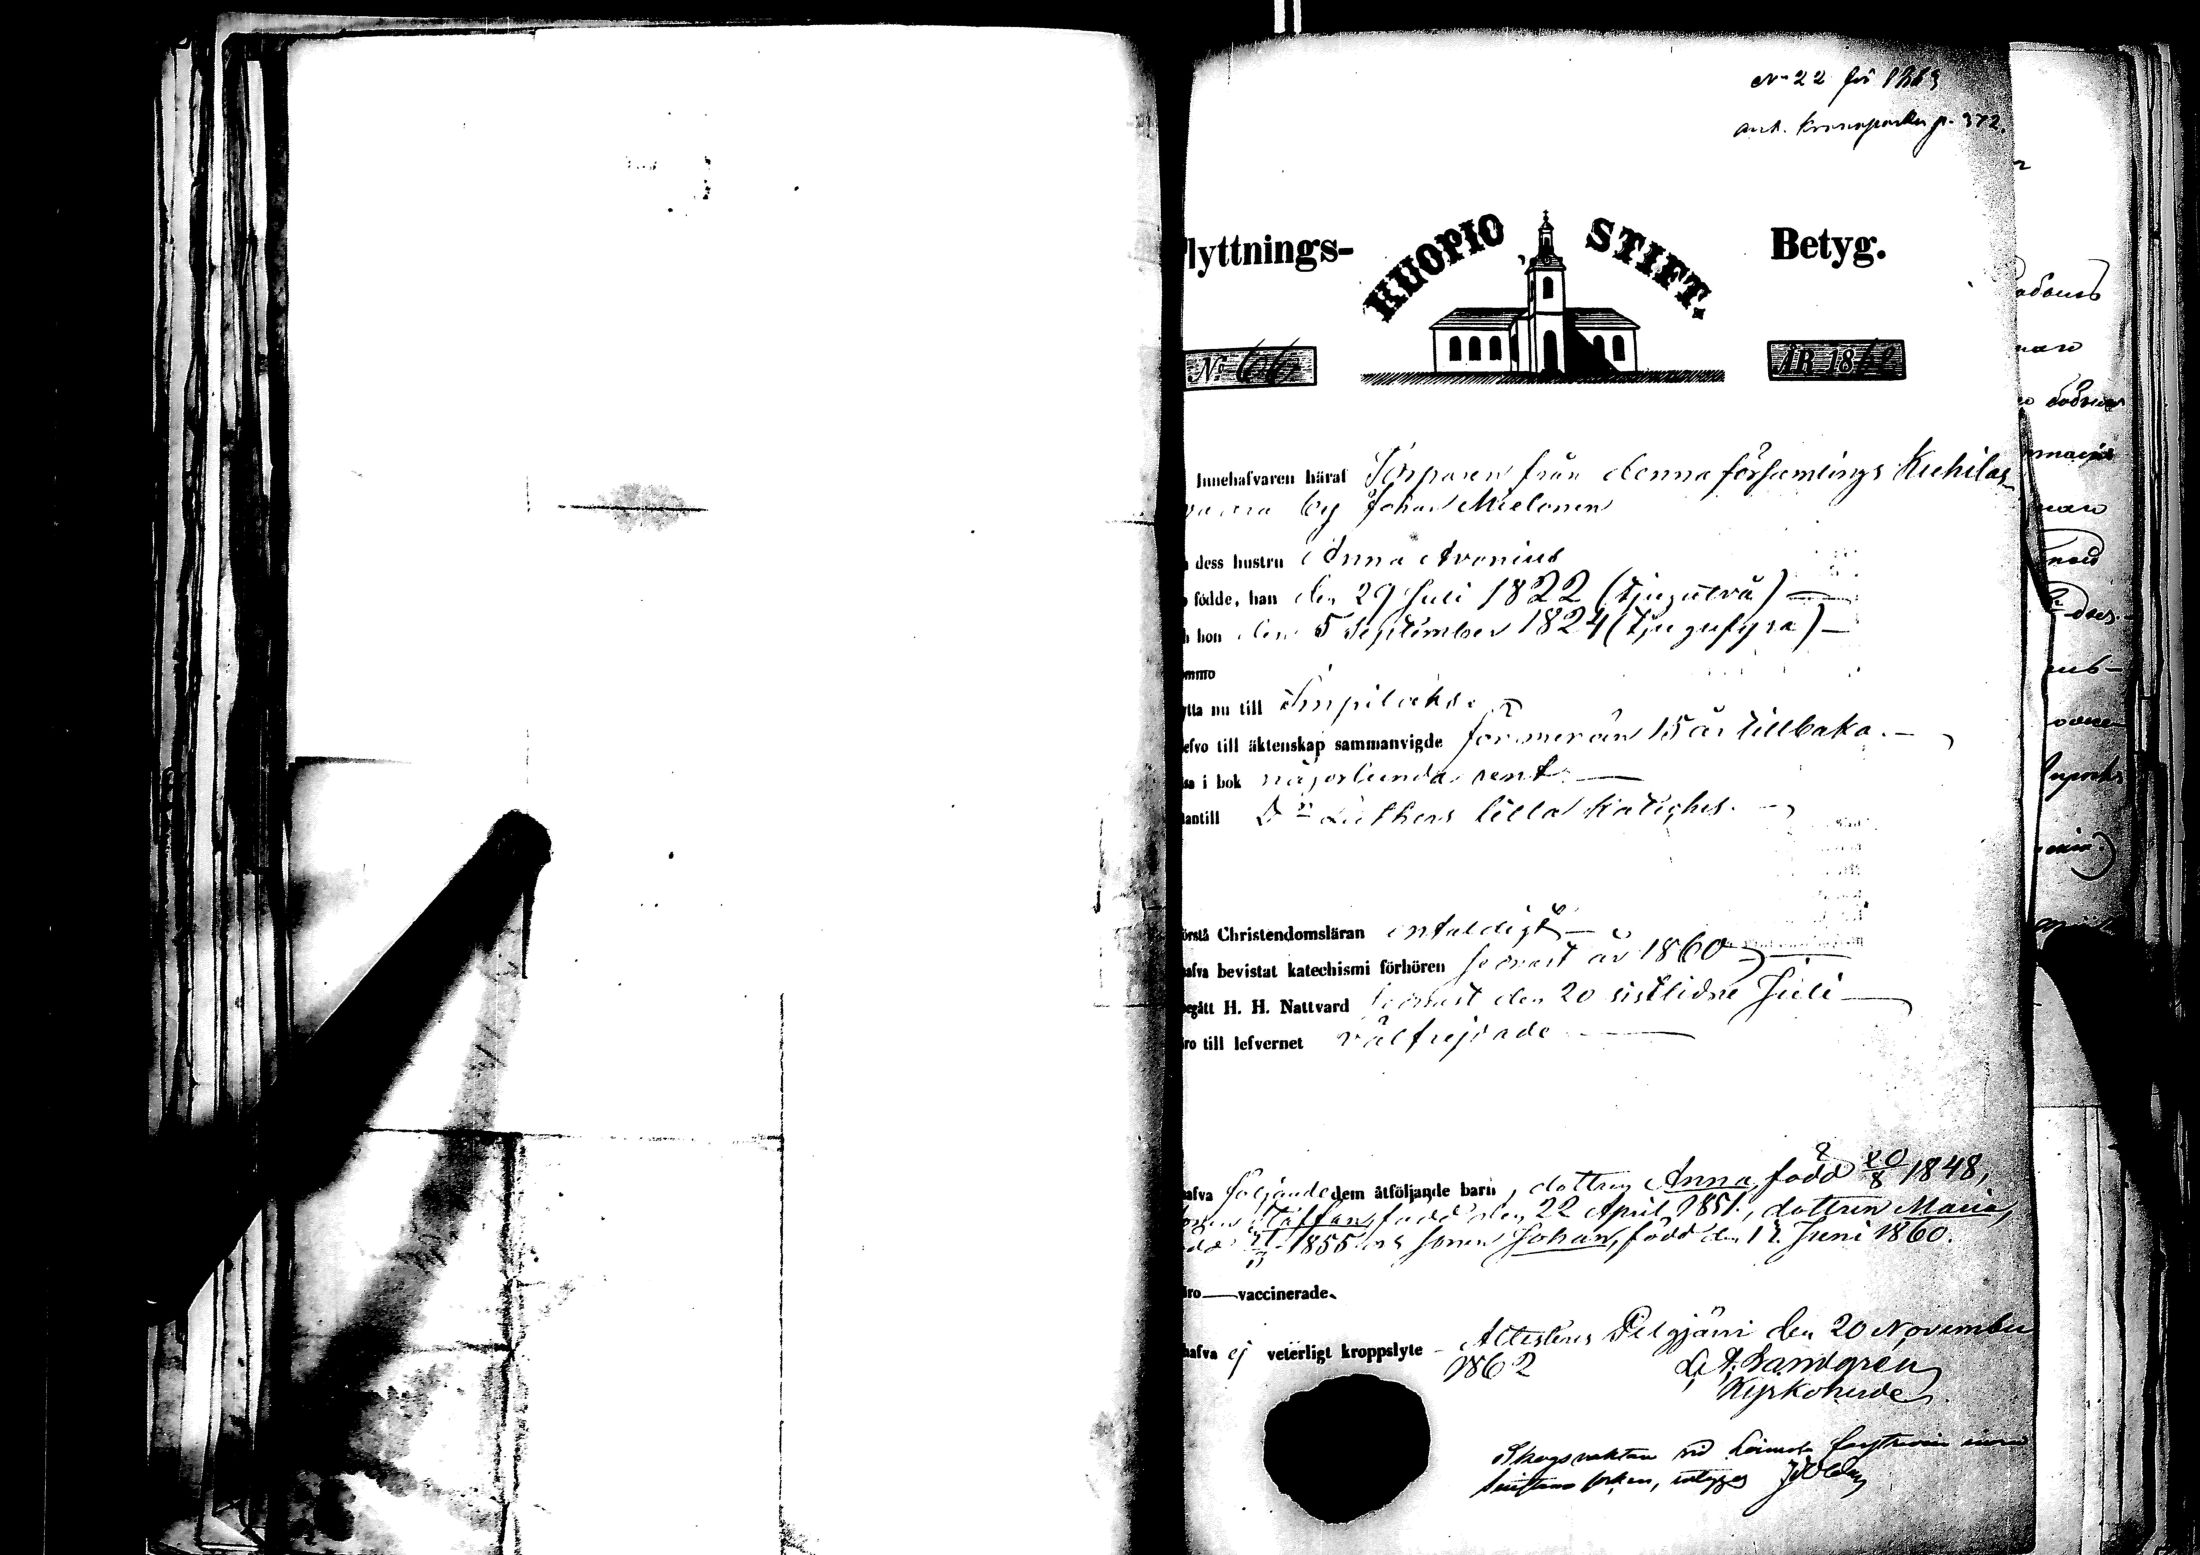 No 22 för 1863
ant. Kronoparken p. 372.
Flyttnings- KUOPIO STIFT. Betyg.
No 66 ÅR 1862
Innehafvaren häraf från denna församlings Kuhilas-
vaara by Johan Mielonen
dess hustru Anna Avonius
födde, han den 29 Juli 1822 (tjugutvå)
hon den 5 September 1824 (tjugufyra)
ytta nu till Impilaks
efvo till äktenskap sammanvigde för mer än 15 år tillbaka.
sa i bok någorlunda rent
antill Dr Luthers lilla Kateches.
örstå Christendomsläran enfaldigt
afva bevistat katechismi förhören senast år 1860
egått H. H. Nattvard senast den 20 sistlidne Juli
ro till lefvernet välfrejdade
afva följande dem åtföljande barn, dottren Anna, född 20/8 1848,
sonen Staffan, född den 22 April 1851, dottren Maria,
född 1855 och sonen Johan, född den 17 Juni 1860.
äro vaccinerade.
hafva ej veterligt kroppslyte Attesteras Pelgjärvi den 20 November
1862 Sandgren
Kyrkoherde
Skogsvaktare vid